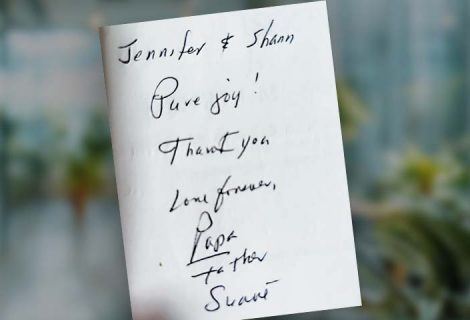 Jennifer & Shann
Pure joy!
Thank you
Love forever,
Papa
Father
Suavé